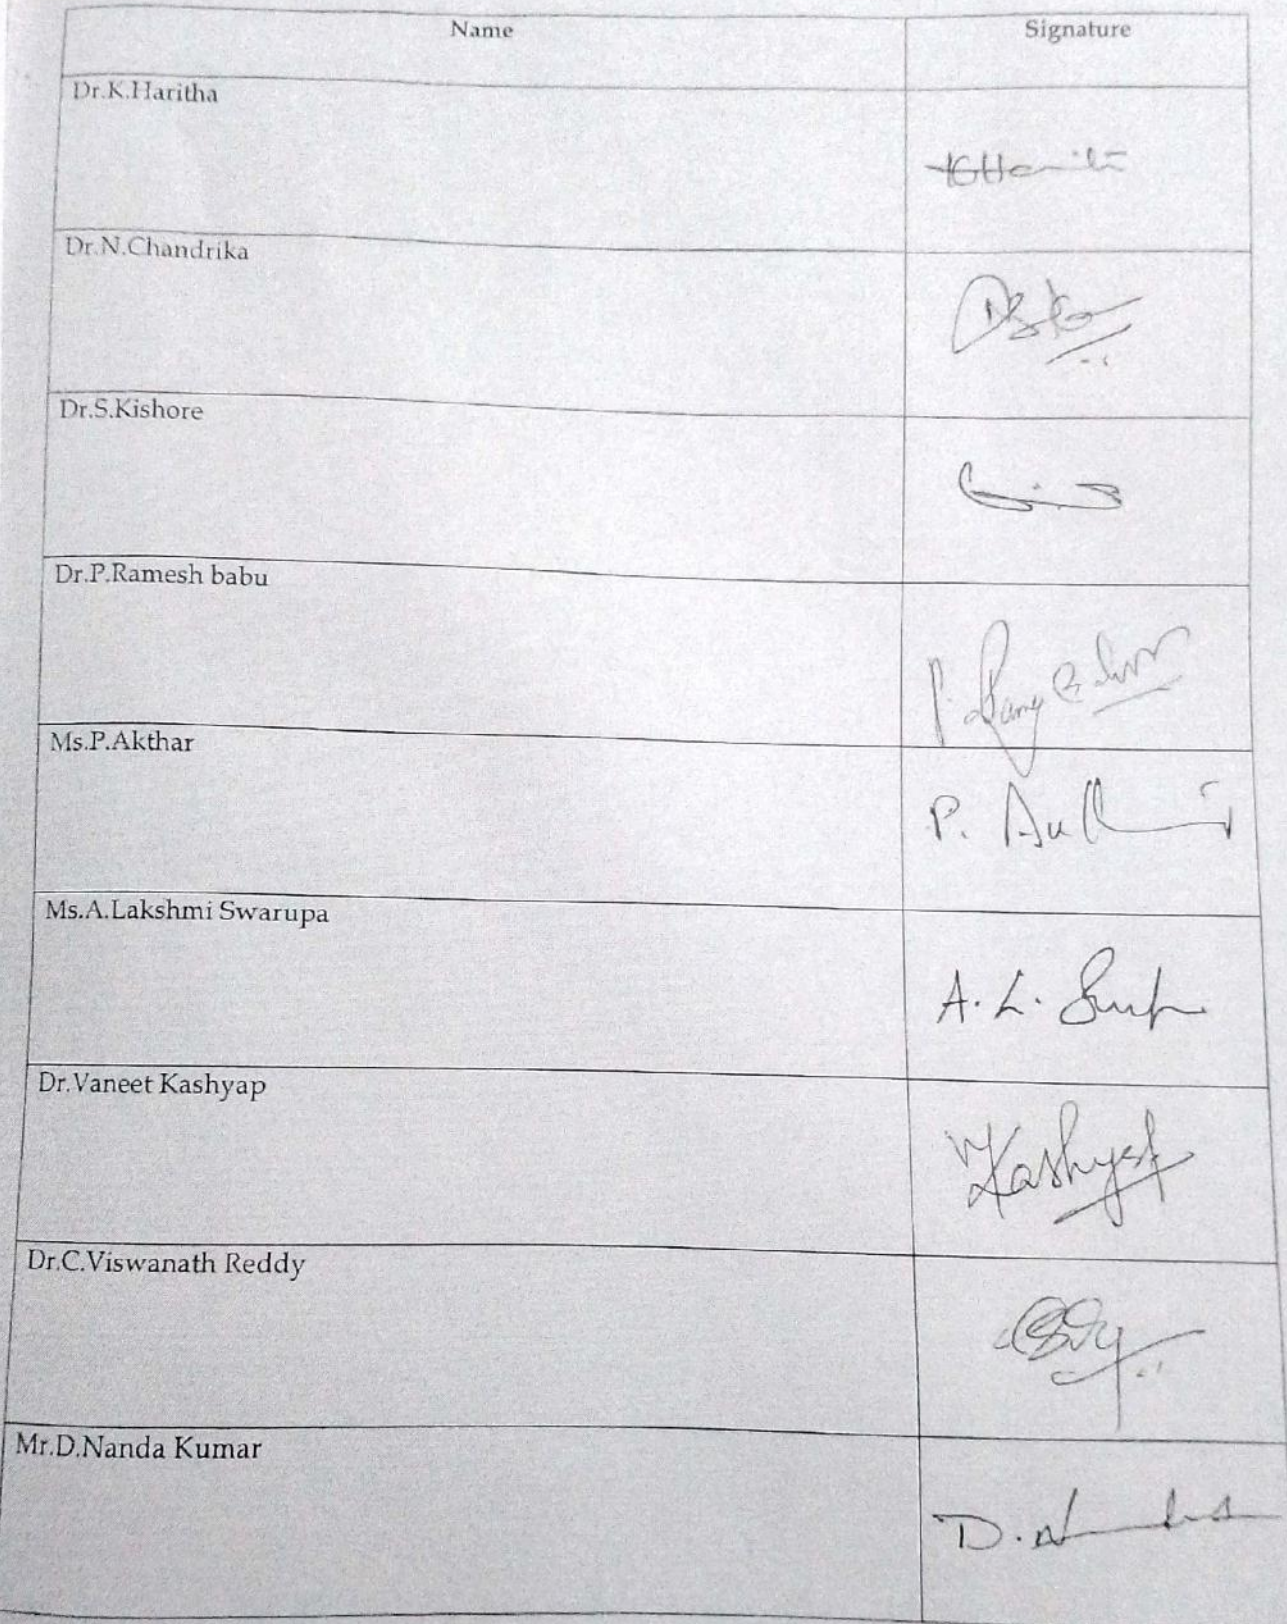 Name Signature
Dr.K.Haritha
Dr.N.Chandrika
Dr.S.Kishore
Dr.P.Ramesh babu
Ms.P.Akthar
P.
Ms.A.Lakshmi Swarupa
A. L.
Dr.Vaneet Kashyap
Kashyap
Dr.C.Viswanath Reddy
Mr.D.Nanda Kumar
D.